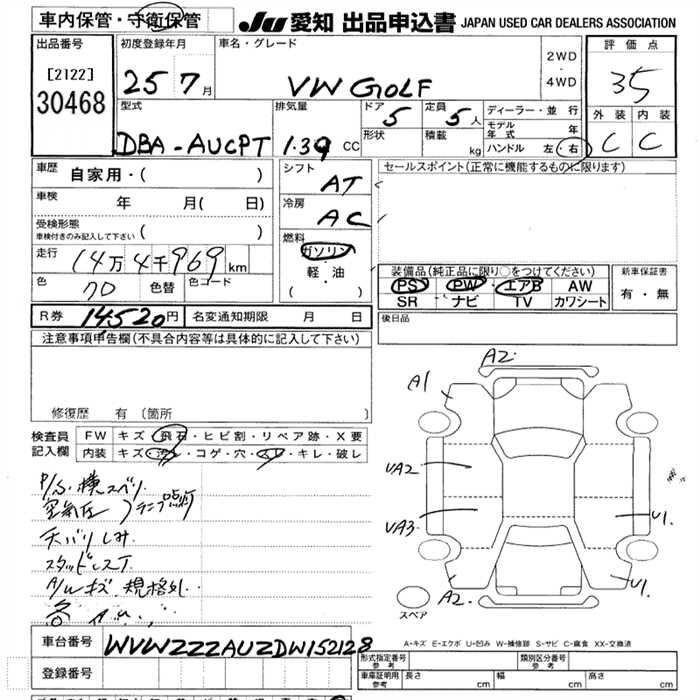 車内保管・守衛保管
JU 愛知 出品申込書 JAPAN USED CAR DEALERS ASSOCIATION
出品番号
[2122]
30468
初度登録年月
25 7月
車名・グレード
VW GOLF
2WD
・
4WD
評価点
35
型式
DBA-AUCPT
排気量
1.39 CC
ドア
5
定員
5人
形状
積載
kg
ディーラー・並行
モデル年式 年
ハンドル 左・右
外装 内装
C C
車歴
自家用・( )
車検
年 月( 日)
受検形態
車検付きのみ記入して下さい ( )
走行
14万4千969km
色
色替
色コード
シフト
AT
冷房
AC
燃料
ガソリン
軽・油
( ・ )
セールスポイント(正常に機能するものに限ります)
装備品(純正品に限り○をつけてください)
PS・PW・エアB AW
SR ナビ TV カワシート
新車保証書
有・無
R券 14,520円 名変通知期限 月 日
後日品
注意事項申告欄(不具合内容等は具体的に記入して下さい)
修復歴 有(箇所 )
検査員
記入欄
FW キズ・飛石・ヒビ割・リペア跡・X要
内装 キズ・汚レ・コゲ・穴・スレ・キレ・破レ
P/S.横スベリ.
空気圧 ランプ点灯
天バリしみ
スタッドレスT
A/Wキズ 規格外.
A2
A1
UA2
UA3
U1
U1
A2
スペア
A-キズ E-エクボ U-凹み W-補修跡 S-サビ C-腐食 XX-交換済
車台番号 WVWZZZAUZDW152128
登録番号
形式指定番号 参考
類別区分番号 参考
車庫証明用 参考 長さ cm 幅 cm 高さ cm